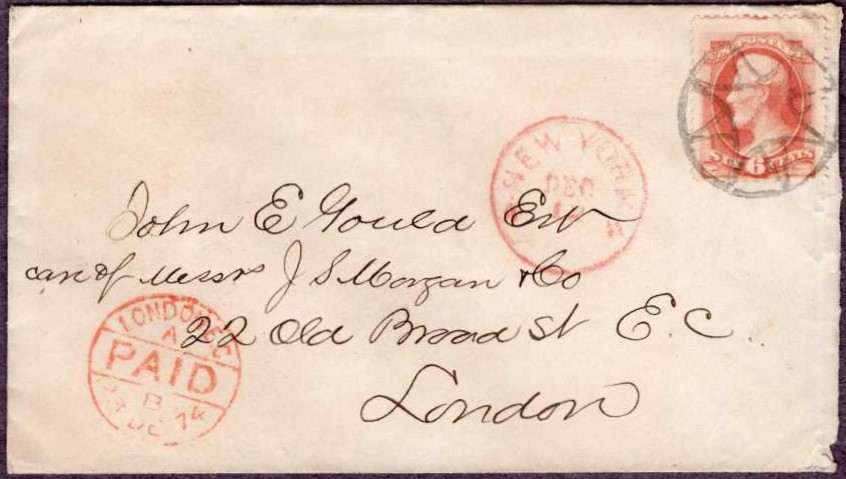 U.S. POSTAGE
SIX 6 CENTS
NEW YORK
DEC
John E Gould Esq
care of Messrs J S Morgan & Co
22 Old Broad St E.C.
London
LONDON EC
A
PAID
B
DE 74